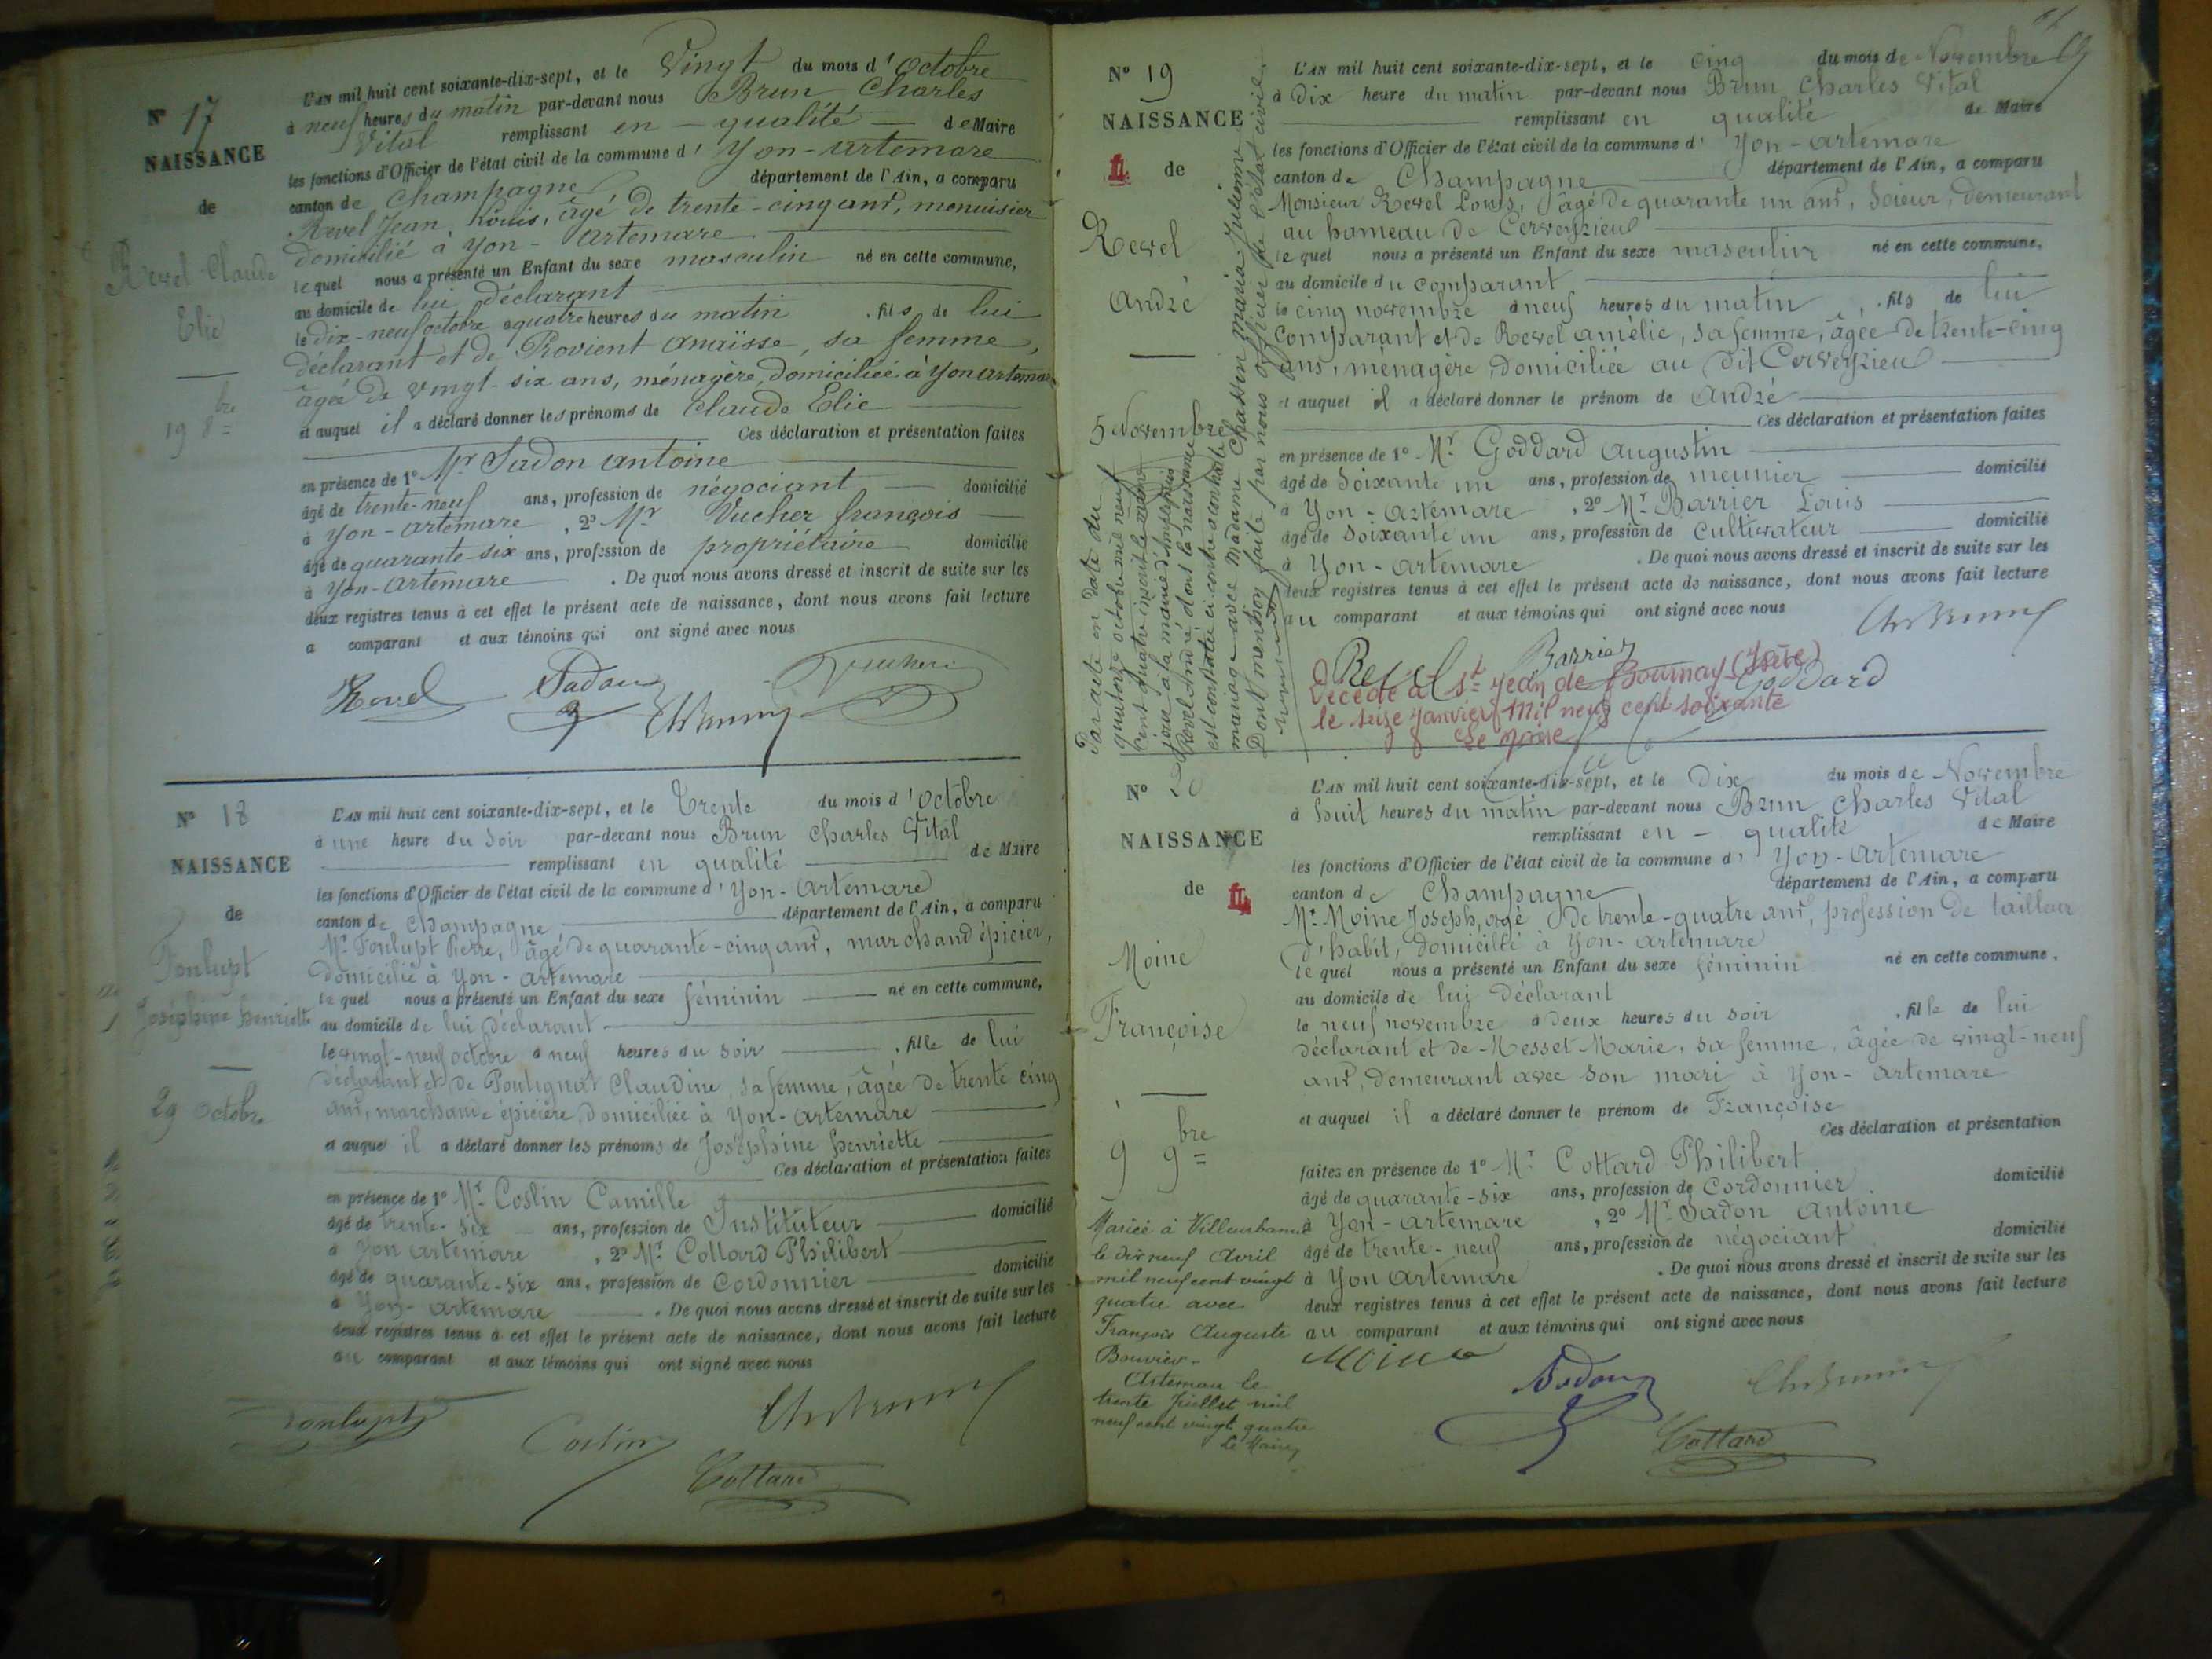 N° 17
NAISSANCE
de
Revel Claude
Elie
19 8bre
L'AN mil huit cent soixante-dix-sept, et le Vingt du mois d'Octobre
à neuf heures du matin par-devant nous Brun Charles
Vital remplissant en qualité de Maire
les fonctions d'Officier de l'état civil de la commune d'Yon-artemare
canton de Champagne département de l'Ain, a comparu
Revel Jean, Louis, âgé de trente-cinq ans, menuisier
domicilié à Yon-Artemare
lequel nous a présenté un Enfant du sexe masculin né en cette commune,
au domicile de lui déclarant
le dix-neuf octobre à quatre heures du matin, fils de lui
déclarant et de Provient Anaïsse, sa femme,
âgée de vingt-six ans, ménagère, domiciliée à Yon artemare
et auquel il a déclaré donner les prénoms de Claude Elie
Ces déclaration et présentation faites
en présence de 1° Mr Sadon Antoine
âgé de trente-neuf ans, profession de négociant domicilié
à Yon-artemare, 2° Mr Vucher françois
âgé de quarante-six ans, profession de propriétaire domicilié
à Yon-artemare. De quoi nous avons dressé et inscrit de suite sur les
deux registres tenus à cet effet le présent acte de naissance, dont nous avons fait lecture
a comparant et aux témoins qui ont signé avec nous
Revel Sadon Vucher
ChBrun
N° 18
NAISSANCE
de
Fonlupt
Joséphine henriette
29 Octobre
L'AN mil huit cent soixante-dix-sept, et le Trente du mois d'Octobre
à une heure du soir par-devant nous Brun Charles Vital
remplissant en qualité de Maire
les fonctions d'Officier de l'état civil de la commune d'Yon-Artemare
canton de Champagne département de l'Ain, a comparu
Mr Fonlupt Pierre, âgé de quarante-cinq ans, marchand épicier,
domicilié à Yon-artemare
lequel nous a présenté un Enfant du sexe féminin né en cette commune,
au domicile de lui déclarant
le vingt-neuf octobre à neuf heures du soir, fille de lui
déclarant et de Poulignat Claudine, sa femme, âgée de trente cinq
ans, marchande épicière, domiciliée à Yon-artemare
et auquel il a déclaré donner les prénoms de Joséphine henriette
Ces déclaration et présentation faites
en présence de 1° Mr Coslin Camille
âgé de trente-six ans, profession de Instituteur domicilié
à Yon artemare, 2° Mr Cottard Philibert
âgé de quarante-six ans, profession de Cordonnier domicilié
à Yon-artemare. De quoi nous avons dressé et inscrit de suite sur les
deux registres tenus à cet effet le présent acte de naissance, dont nous avons fait lecture
au comparant et aux témoins qui ont signé avec nous
Fonlupt Coslin ChBrun
Cottard
N° 19
NAISSANCE
de
Revel
André
5 Novembre
Par acte en date du
quatorze octobre mil neuf
cent quatre inscrit le même
jour à la mairie
Revel André dont la naissance
est constatée ci-contre a contracté
mariage avec Madame Chassin maria Julienne
Dont mention faite par nous officier de l'état civil.
L'AN mil huit cent soixante-dix-sept, et le cinq du mois de Novembre
à dix heure du matin par-devant nous Brun Charles Vital
remplissant en qualité de Maire
les fonctions d'Officier de l'état civil de la commune d'Yon-artemare
canton de Champagne département de l'Ain, a comparu
Monsieur Revel Louis, âgé de quarante un ans, Scieur, demeurant
au hameau de Cerveyrieu
lequel nous a présenté un Enfant du sexe masculin né en cette commune,
au domicile du comparant
le cinq novembre à neuf heures du matin, fils de lui
comparant et de Revel amélie, sa femme, âgée de trente-cinq
ans, ménagère, domiciliée au dit Cerveyrieu
et auquel il a déclaré donner le prénom de André
Ces déclaration et présentation faites
en présence de 1° Mr Goddard Augustin
âgé de Soixante un ans, profession de meunier domicilié
à Yon-artemare, 2° Mr Barrier Louis
âgé de soixante un ans, profession de Cultivateur domicilié
à Yon-artemare. De quoi nous avons dressé et inscrit de suite sur les
deux registres tenus à cet effet le présent acte de naissance, dont nous avons fait lecture
au comparant et aux témoins qui ont signé avec nous
ChBrun
Revel Barrier Goddard
Décédé à St Jean de Bournay (Isère)
le seize Janvier Mil neuf cent soixante
Le Maire
N° 20
NAISSANCE
de
Moine
Françoise
9 9bre
Mariée à Villeurbanne
le dix neuf Avril
mil neuf cent vingt
quatre avec
François Auguste
Bouvier.
Artemare le
trente Juillet mil
neuf cent vingt quatre
Le Maire,
L'AN mil huit cent soixante-dix-sept, et le Dix du mois de Novembre
à huit heures du matin par-devant nous Brun Charles Vital
remplissant en qualité de Maire
les fonctions d'Officier de l'état civil de la commune d'Yon-artemare
canton de Champagne département de l'Ain, a comparu
Mr Moine Joseph, agé de trente-quatre ans, profession de tailleur
d'habit, domicilié à Yon-artemare
lequel nous a présenté un Enfant du sexe féminin né en cette commune,
au domicile de lui déclarant
le neuf novembre à deux heures du soir, fille de lui
déclarant et de Messet Marie, sa femme, âgée de vingt-neuf
ans, demeurant avec son mari à Yon-artemare
et auquel il a déclaré donner le prénom de Françoise
Ces déclaration et présentation
faites en présence de 1° Mr Cottard Philibert
âgé de quarante-six ans, profession de Cordonnier domicilié
à Yon-artemare, 2° Mr Sadon Antoine
âgé de trente-neuf ans, profession de négociant domicilié
à Yon artemare. De quoi nous avons dressé et inscrit de suite sur les
deux registres tenus à cet effet le présent acte de naissance, dont nous avons fait lecture
au comparant et aux témoins qui ont signé avec nous
Moine Sadon ChBrun
Cottard